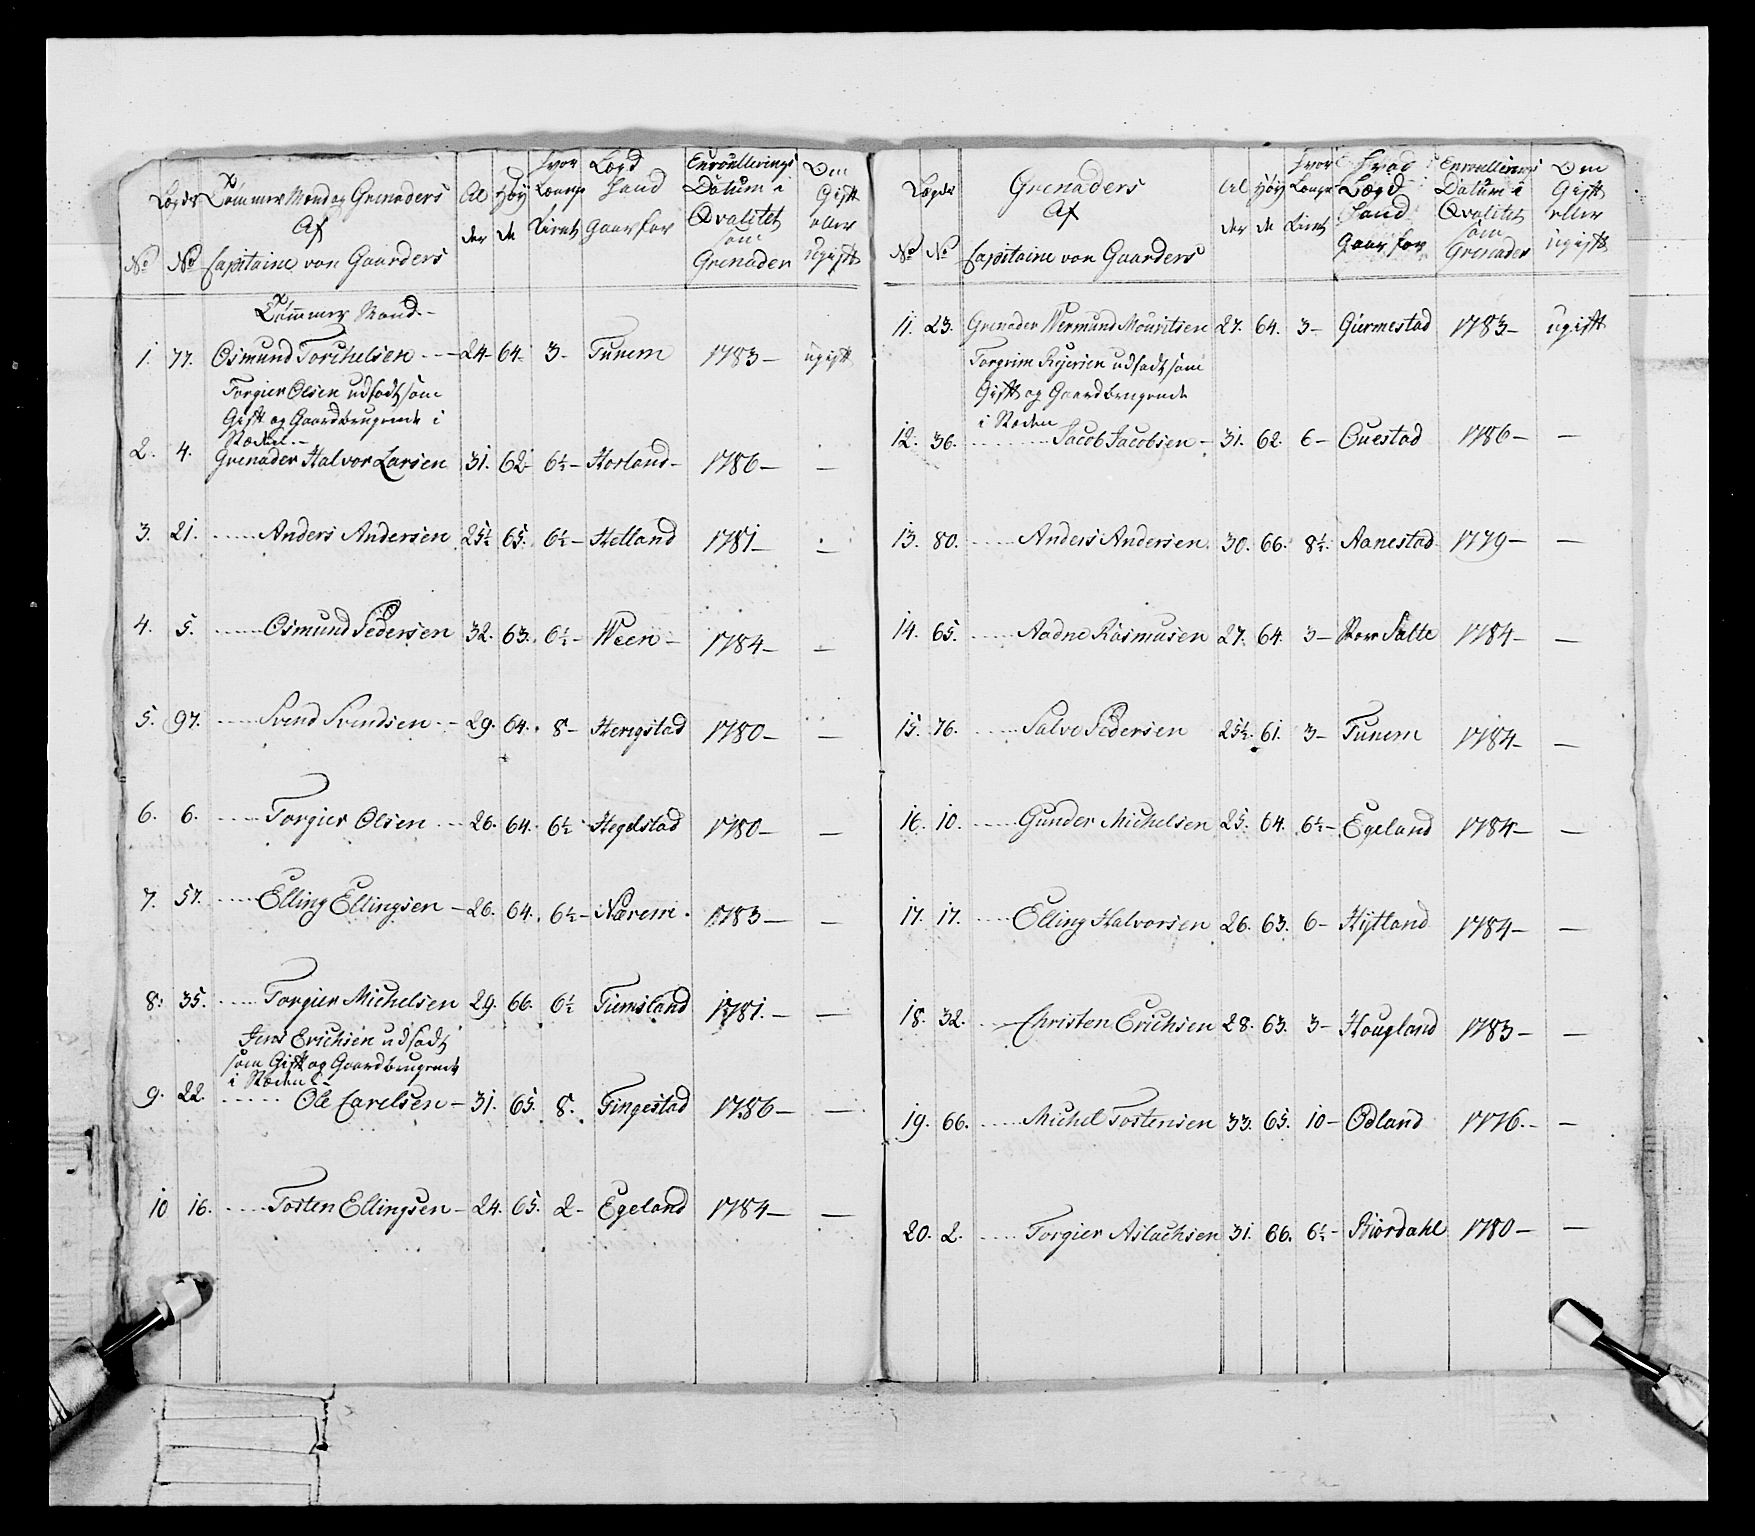 Lægds Tømmer Mand og Grenaders Al Høy hvor Længe Lægd Enroullerings Om
Af der de tient hand Datum i Gift
No No Capitaine von Gaarders Gaar for Qvalitet som Grenader eller ugift
Tømmer Mand.-
1. 77. Osmund Torchelsen 24- 64- 3- Tunem 1783- ugift
Torgier Olsen udsadt som
Gift og Gaardbrugende i
Stæden.-
2. 4. Grenader Halvor Larsen 31. 62- 6½- Horland- 1786- -
3. 21. Anders Andersen 25½ 65. 6½- Helland 1781- -
4. 5. Osmund Pedersen 32. 63. 6½- Ween- 1784- -
5. 97. Svend Svendsen 29. 64. 8- Herigstad 1780- -
6. 6. Torgier Olsen 26. 64. 6½ Hegelstad 1780- -
7. 57. Elling Ellingsen- 26. 64. 6½- Nærem. 1783- -
8. 35. Torgier Michelsen 29. 66. 6½ Tiemsland 1781.- -
Jens Erichsen udsadt
som Gift og Gaardbrugende
i Stæden.-
9. 22. Ole Carelsen- 31. 65. 8. Tingestad 1786- -
10 16. Tosten Ellingsen- 24. 65. 2- Egeland 1784- -
Lægds Grenaders Al Høy hvor Længe hvad Lægd Enroullerings Om
Af der de tient hand Datum i Gift
No No Capitaine von Gaarders Gaar for Qvalitet som Grenader eller ugift
11. 23. Grenader Wermund Mouritsen 27. 64. 3- Giermestad 1783- ugift
Torgrim Reiersen udsadt som
Gift og Gaardbrugende
i Stæden
12. 36. Jacob Jacobsen- 31. 62. 6- Ouestad 1786- -
13. 80. Anders Andersen. 30. 66. 8½. Aanestad 1779- -
14. 65. Aadne Rasmusen 27. 64. 3- Stor Salte 1784- -
15. 76. Salve Pedersen 25½. 61. 3- Tunem 1784- -
16. 10. Gunder Michelsen 25. 64. 6½- Egeland 1784- -
17. 17. Elling Halvorsen 26. 63. 6- Hytland 1784- -
18. 32. Christen Erichsen 28. 63. 3- Hougland 1783- -
19. 66. Michel Tostensen 33. 65. 10- Odland 1776.- -
20. 2. Torgier Aslachsen 31. 66. 6½- Stiordahl 1780- -